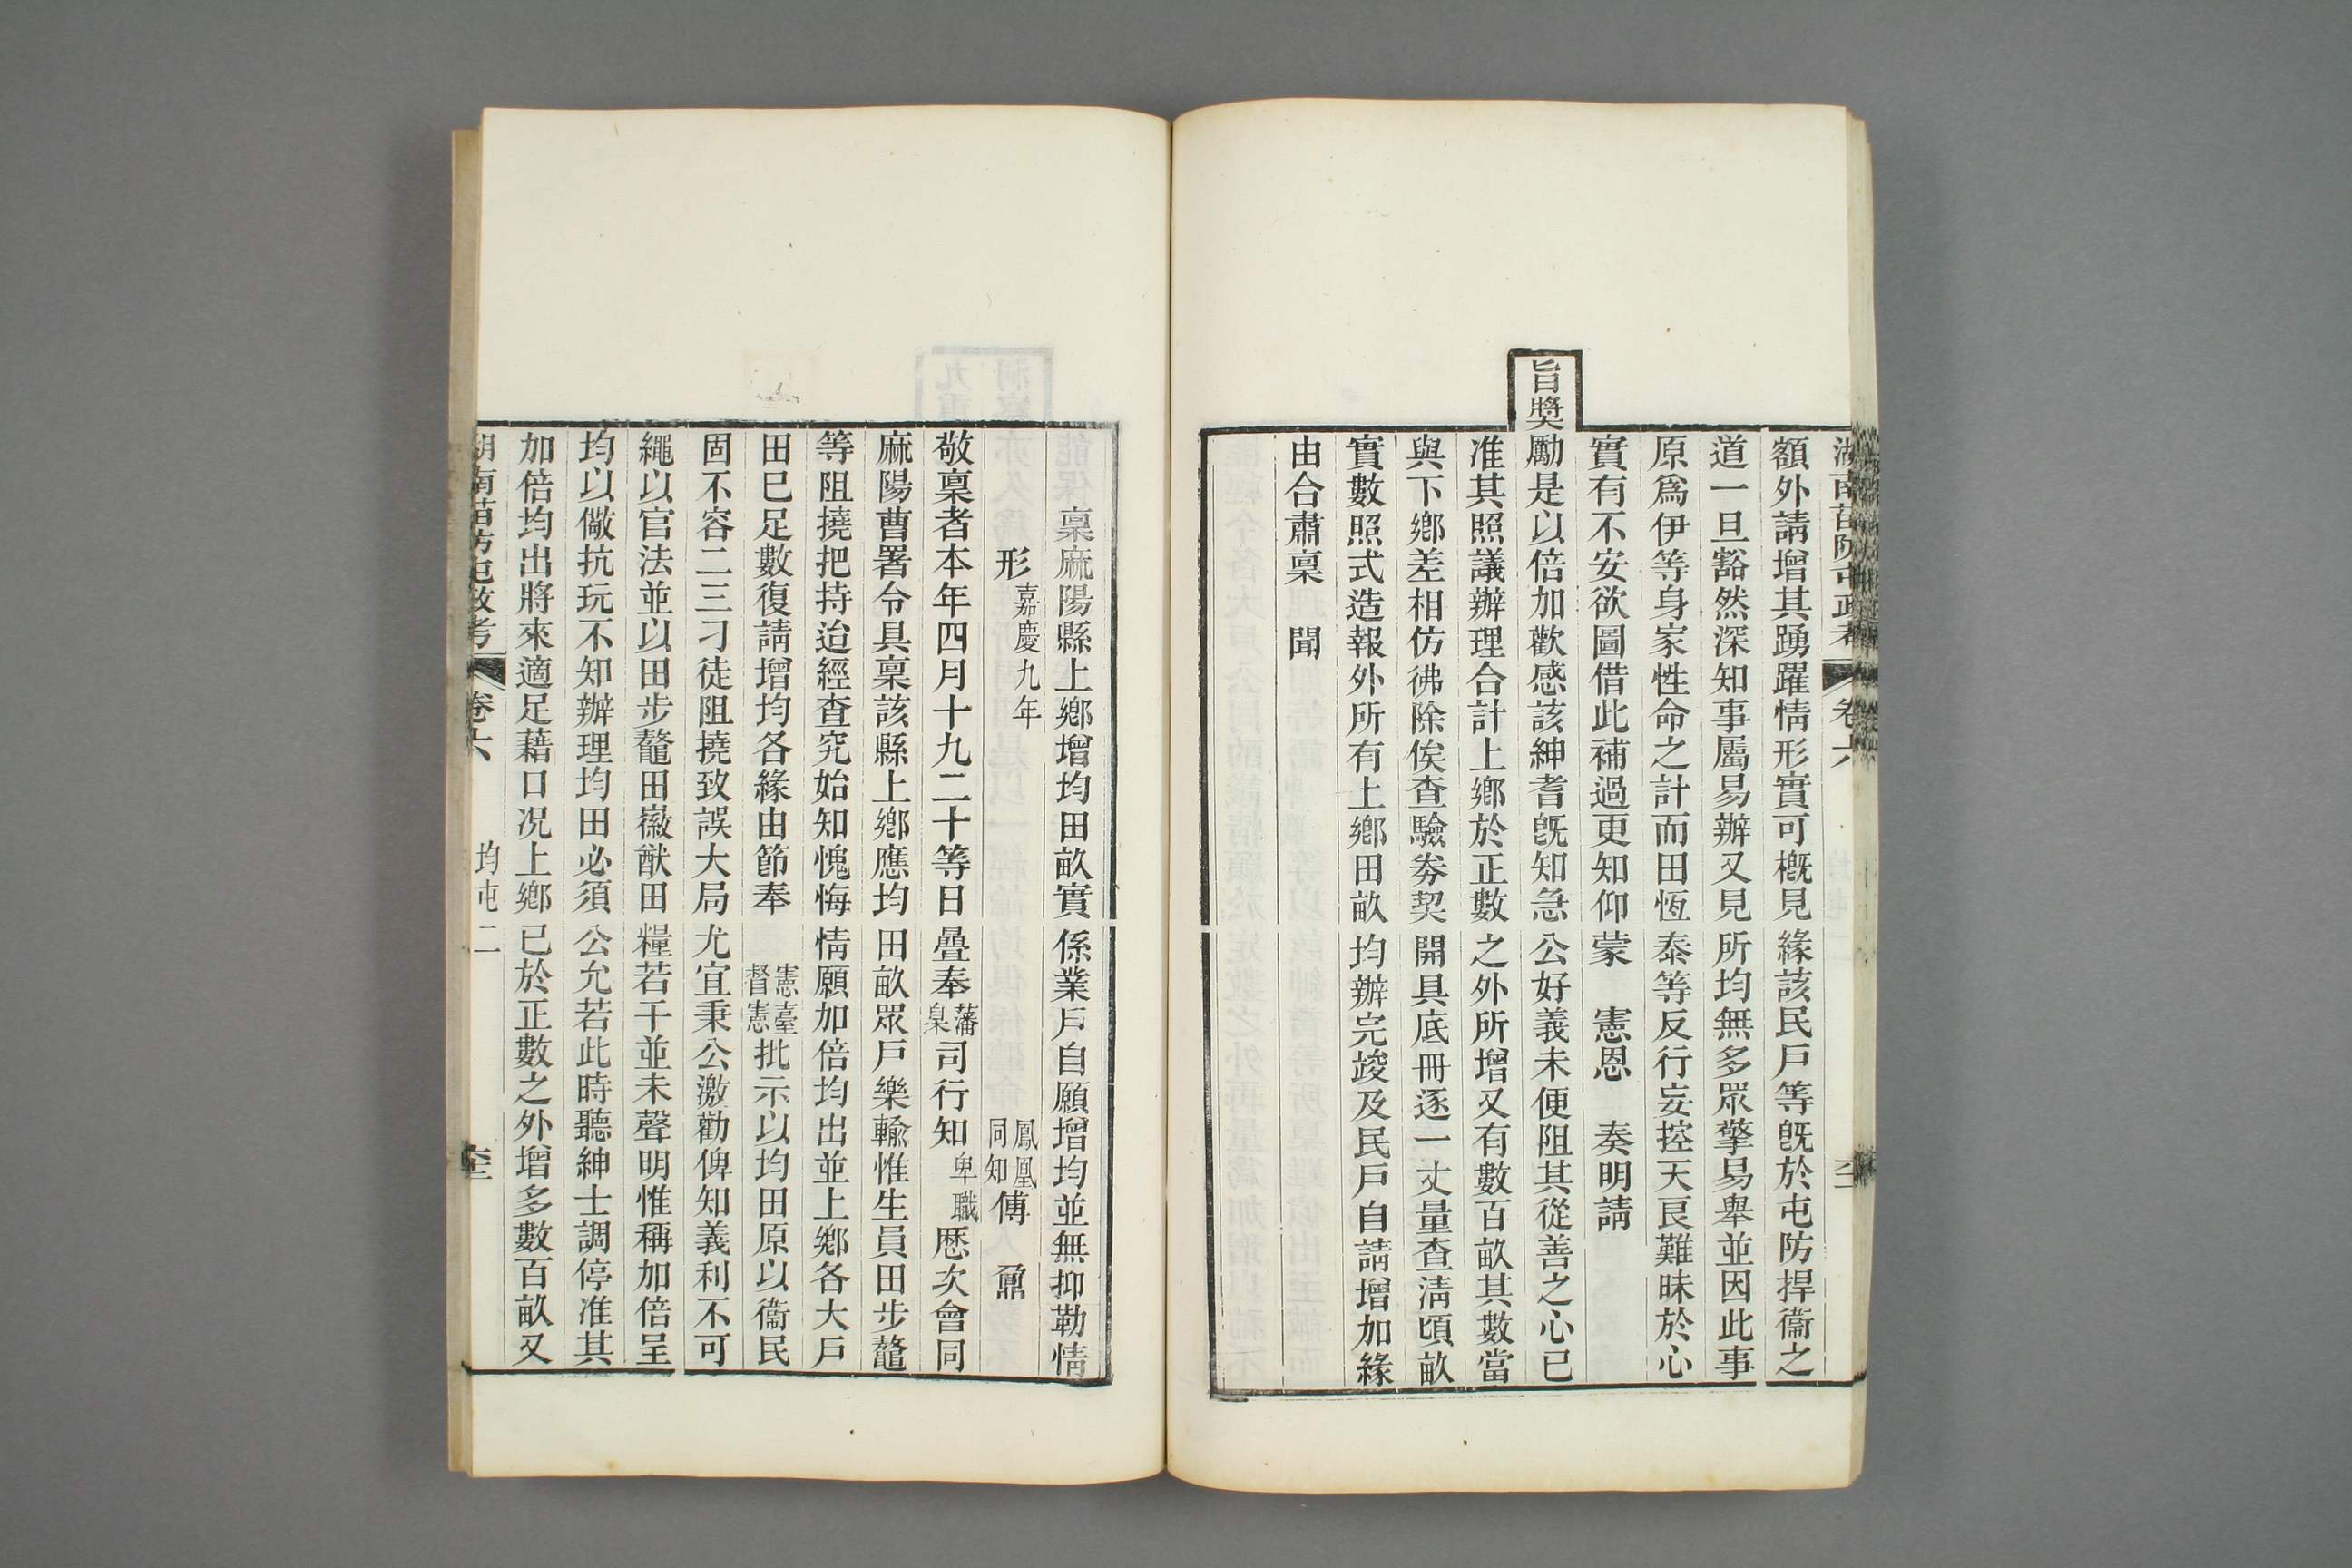 湖南苗防屯政考 卷六
額外請增其踴躍情形實可概見緣該民戶等旣於屯防捍衞之
道一旦豁然深知事屬易辦又見所均無多眾擎易舉並因此事
原爲伊等身家性命之計而田恆泰等反行妄控天良難昧於心
實有不安欲圖借此補過更知仰蒙 憲恩 奏明請
旨奬勵是以倍加歡感該紳耆旣知急公好義未便阻其從善之心已
准其照議辦理合計上鄉於正數之外所增又有數百畝其數當
與下鄉差相仿彿除俟查驗劵契開具底冊逐一丈量查淸頃畝
實數照式造報外所有上鄉田畝均辦完竣及民戶自請增加緣
由合肅稟 聞
稟麻陽縣上鄉增均田畝實係業戶自願增均並無抑勒情
形 嘉慶九年 鳳凰同知傅 鼐
敬稟者本年四月十九二十等日疊奉藩臬司行知卑職歷次會同
麻陽曹署令具稟該縣上鄉應均田畝眾戶樂輸惟生員田步鼇
等阻撓把持迨經查究始知愧悔情願加倍均出並上鄉各大戶
田已足數復請增均各緣由節奉憲臺督憲批示以均田原以衞民
固不容二三刁徒阻撓致誤大局尤宜秉公激勸俾知義利不可
繩以官法並以田步鼇田嶶猷田糧若干並未聲明惟稱加倍呈
均以儆抗玩不知辦理均田必須公允若此時聽紳士調停准其
加倍均出將來適足藉口况上鄉已於正數之外增多數百畝又
湖南苗防屯政考 卷六 均屯二